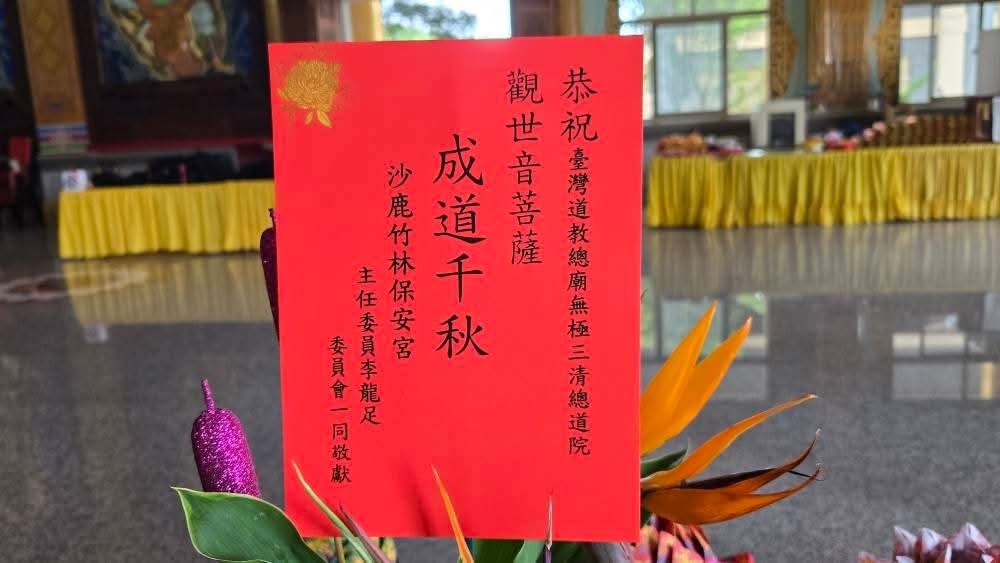 恭祝臺灣道教總廟無極三清總道院
觀世音菩薩
成道千秋
沙鹿竹林保安宮
主任委員李龍足
委員會一同敬獻